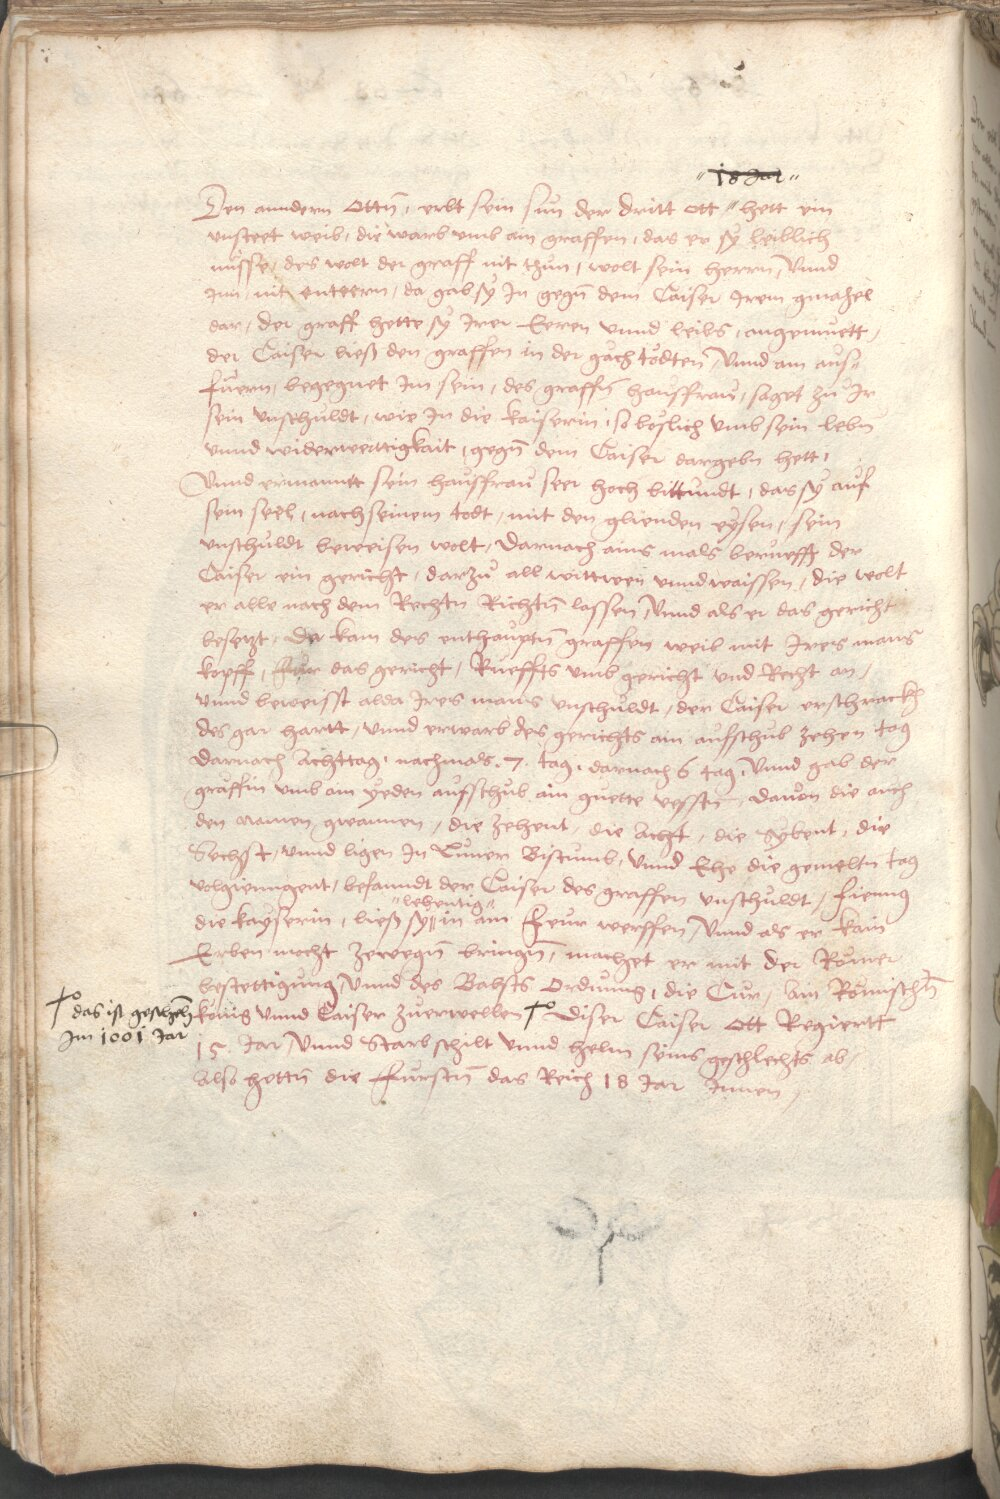 "18 Jar"
Den anndern Ottn̄, erbt sein sun der dritt ott " hett ein
vnsteet weib, die warb vmb ain graffen, das er sy leiblich
nüsse, des wolt der graff nit thun, wolt sein herrn, Vnnd
Jnn, nit enteern, da gab sy Jn gegn̄ dem Caiser Jrem gmahel
dar, der graff hette sy Jrer Eeren vnnd leibs, angemuett,
der Caiser ließ den graffen in der gäch tödten, Vnnd am aus"
fuern, begegnet Jm sein, des graffn̄ hausfrau, saget zu Jr
sein vnschuldt, wie Jn die kaiserin, so böslich vmb sein lebn
vnnd widerwerttigkait, gegn̄ dem Caiser dargebn hett,
Vnnd ermanntt sein hausfrau seer hoch bittundt, das sy auf
sein seel, nach seinem todt, mit den glienden eysen, sein
vnschuldt beweisen wolt, Darnach ains mals beruefft der
Caiser ein gericht, darzu all wittwen vnnd waissen, die wolt
er alle nach dem Rechtn Richtn̄ lassen, Vnnd als er das gericht
besetzt, Da kam des enthauptn̄ graffen weib mit Jres mans
kopff, fur das gericht, Rueffts vmb gericht vnd Recht an,
vnnd beweisst alda Jres mans vnschuldt, der Caiser erschrackh
des gar hartt, vnnd erwarb des gerichts ain aufschub zehen tag
darnach Achttag, nachmals .7. tag, darnach 6 tag, Vnnd gab der
gräffin vmb ain yeden aufschub ain guette vesstn, dauon die auch
den namen gwannen, die zehent, die Acht, die Sybent, die
Sechst, vnnd ligen Jn Luner Bistumb, Vnnd Ehe die gemeltn tag
volgienngent, befanndt der Caiser des graffen vnschuldt, fienng
"lebentig"
die kayserin, ließ sy in ain feur werffen, Vnnd als er kain
Erben mocht zewegn̄ bringn̄, machet er mit der Römer
bestettigung, Vnnd des Babsts Ordnung, die Cur, Ain Römischn̄
könig vnnd Caiser zuerwellen † Diser Caiser Ott Regiertt
† das ist geschehn̄
Jm 1001 Jar
15. Jar, Vnnd Starb schilt vnnd helm seins geschlechts ab,
Also hettn̄ die Furstn̄ das Reich 18 Jar Jnnen,